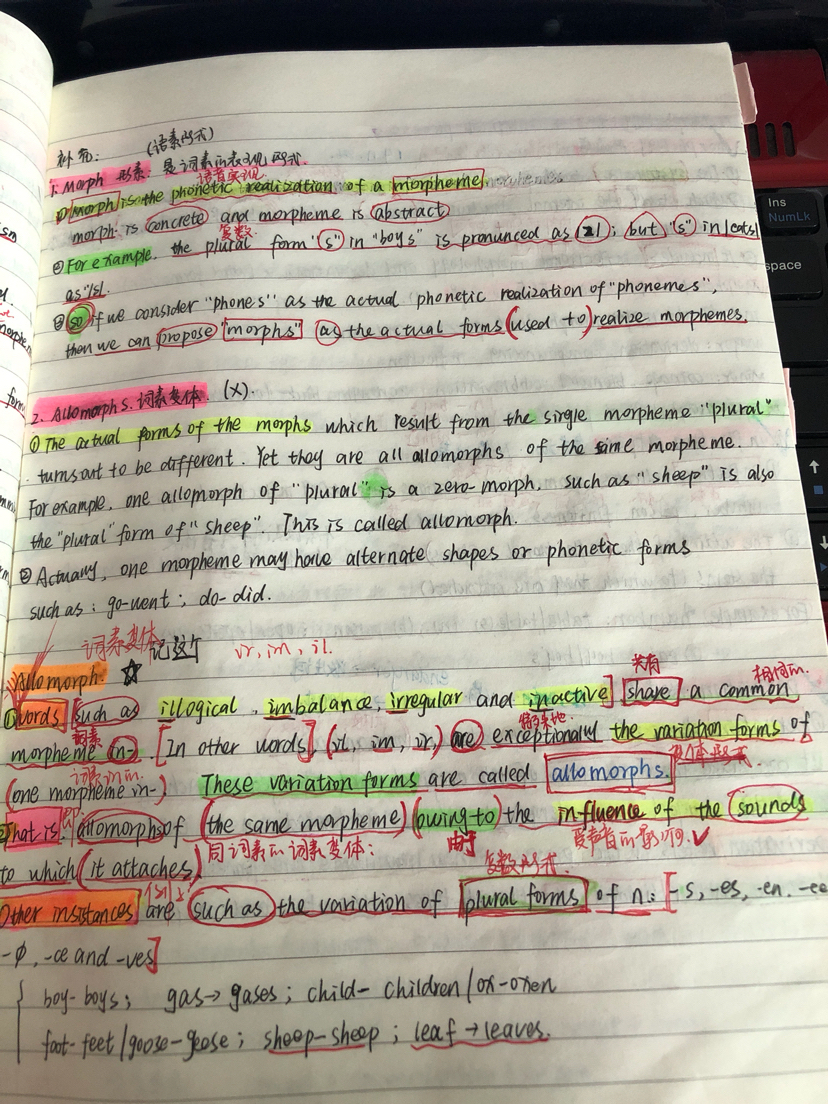 补充: (语素形式)
1. Morph 形素. 是词素的表现形式.
语音实现
① Morph is the phonetic realization of a morpheme.
morph is concrete and morpheme is abstract
复数
② For example. the plural form "s" in "boys" is pronunced as /z/; but "s" in /cats/
as "/s/.
③ so if we consider "phones" as the actual phonetic realization of "phonemes",
then we can propose "morphs" as the actual forms (used to) realize morphemes.
2. Allomorphs. 词素变体. (X).
① The actual forms of the morphs which result from the single morpheme "plural"
turns out to be different. Yet they are all allomorphs of the same morpheme.
For example, one allomorph of "plural" is a zero-morph. such as "sheep" is also
the "plural" form of "sheep". This is called allomorph.
② Actuany, one morpheme may have alternate shapes or phonetic forms
such as: go-went; do-did.
词素变体 记这个 ir, im, il.
Allomorph. ☆
共有 相同的.
① words such as illogical, imbalance, irregular and inactive] share a common
词素 特殊地
morpheme in-. [In other words], (il, im, ir) are exceptionally the variation forms of
(one morpheme in-) These variation forms are called allomorphs.
② That is. 即 allomorphs of (the same morpheme) (owing to) the influence of the sounds
由于 受声音的影响. ✓
to which (it attaches) 同词素的词素变体:
复数形式.
Other insistances are such as the variation of plural forms of n: [-s, -es, -en. -ee
-∅, -ce and -ves]
boy-boys; gas→gases; child-children/ox-oxen
foot-feet/goose-geese; sheep-sheep; leaf→leaves.
Ins
NumLk
space